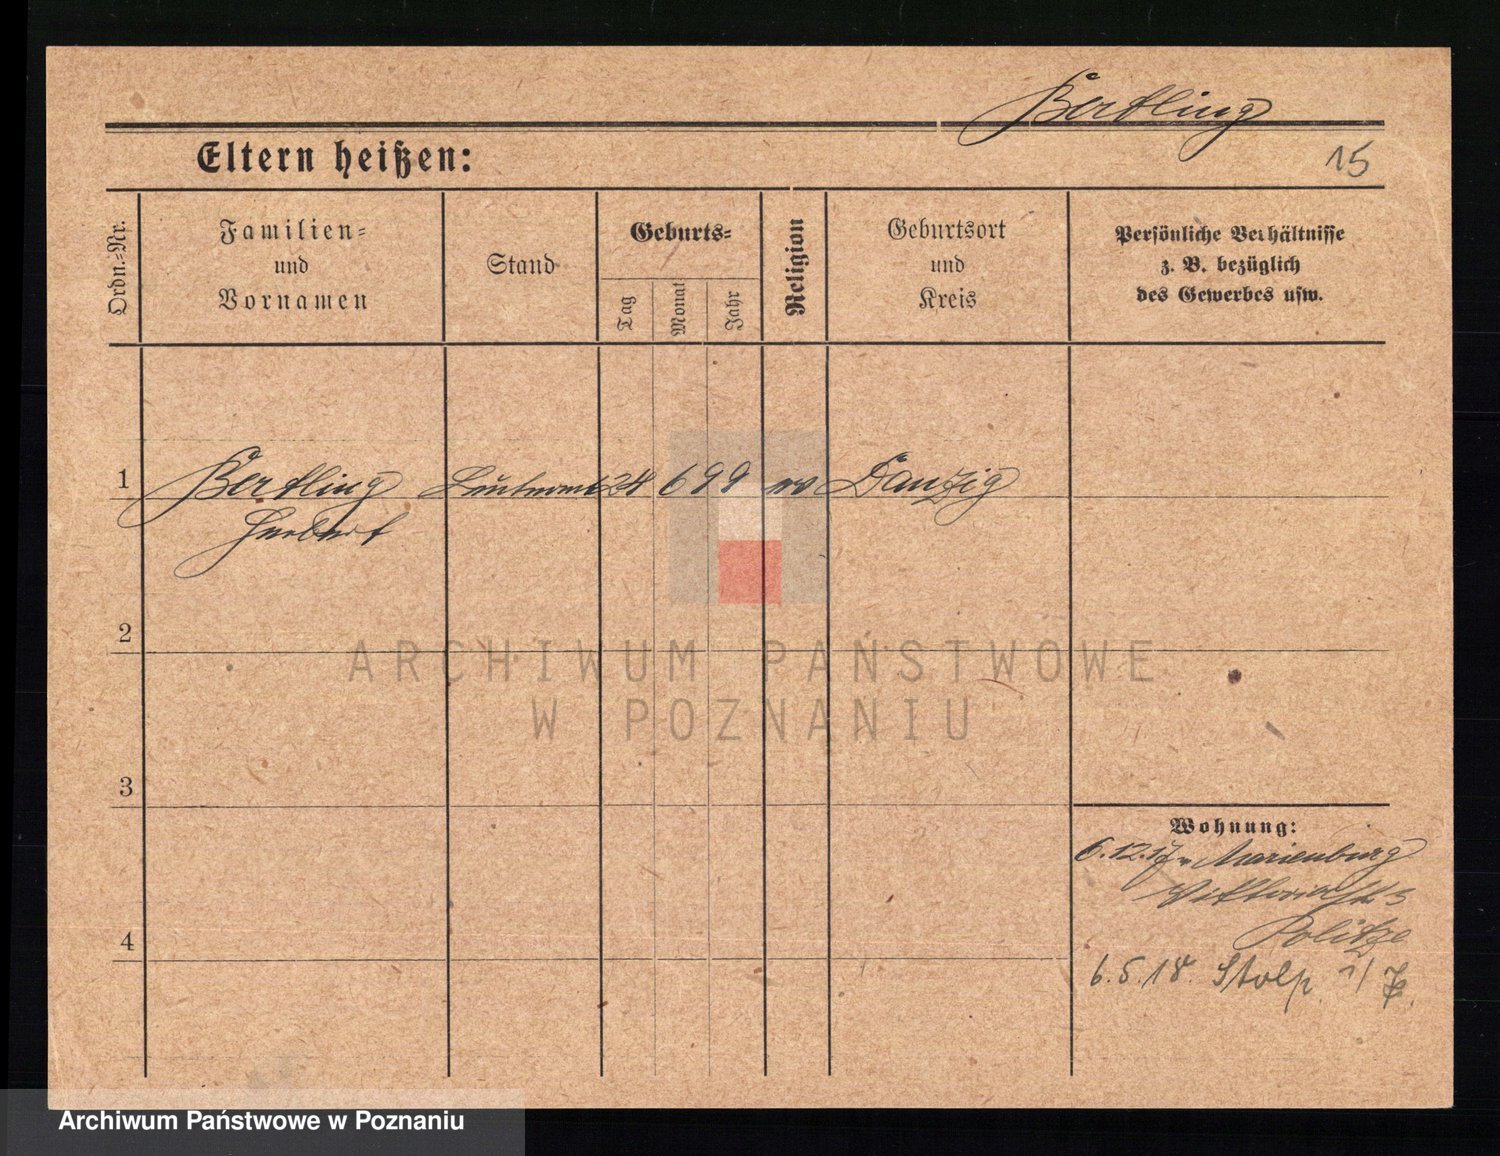 Bertling
Eltern heißen:
15
Ordn.-Nr.
Familien-
und
Vornamen
Stand
Geburts-
Tag
Monat
Jahr
Religion
Geburtsort
und
Kreis
Persönliche Verhältnisse
z. B. bezüglich
des Gewerbes usw.
1
Bertling Leutnant 24 6 99 ev Danzig
Herbert
2
ARCHIWUM PAŃSTWOWE
W POZNANIU
3
Wohnung:
6.12.17 v. Marienburg
Viktoriastr 3
4
6.5.18. Stolp i/P.
Archiwum Państwowe w Poznaniu